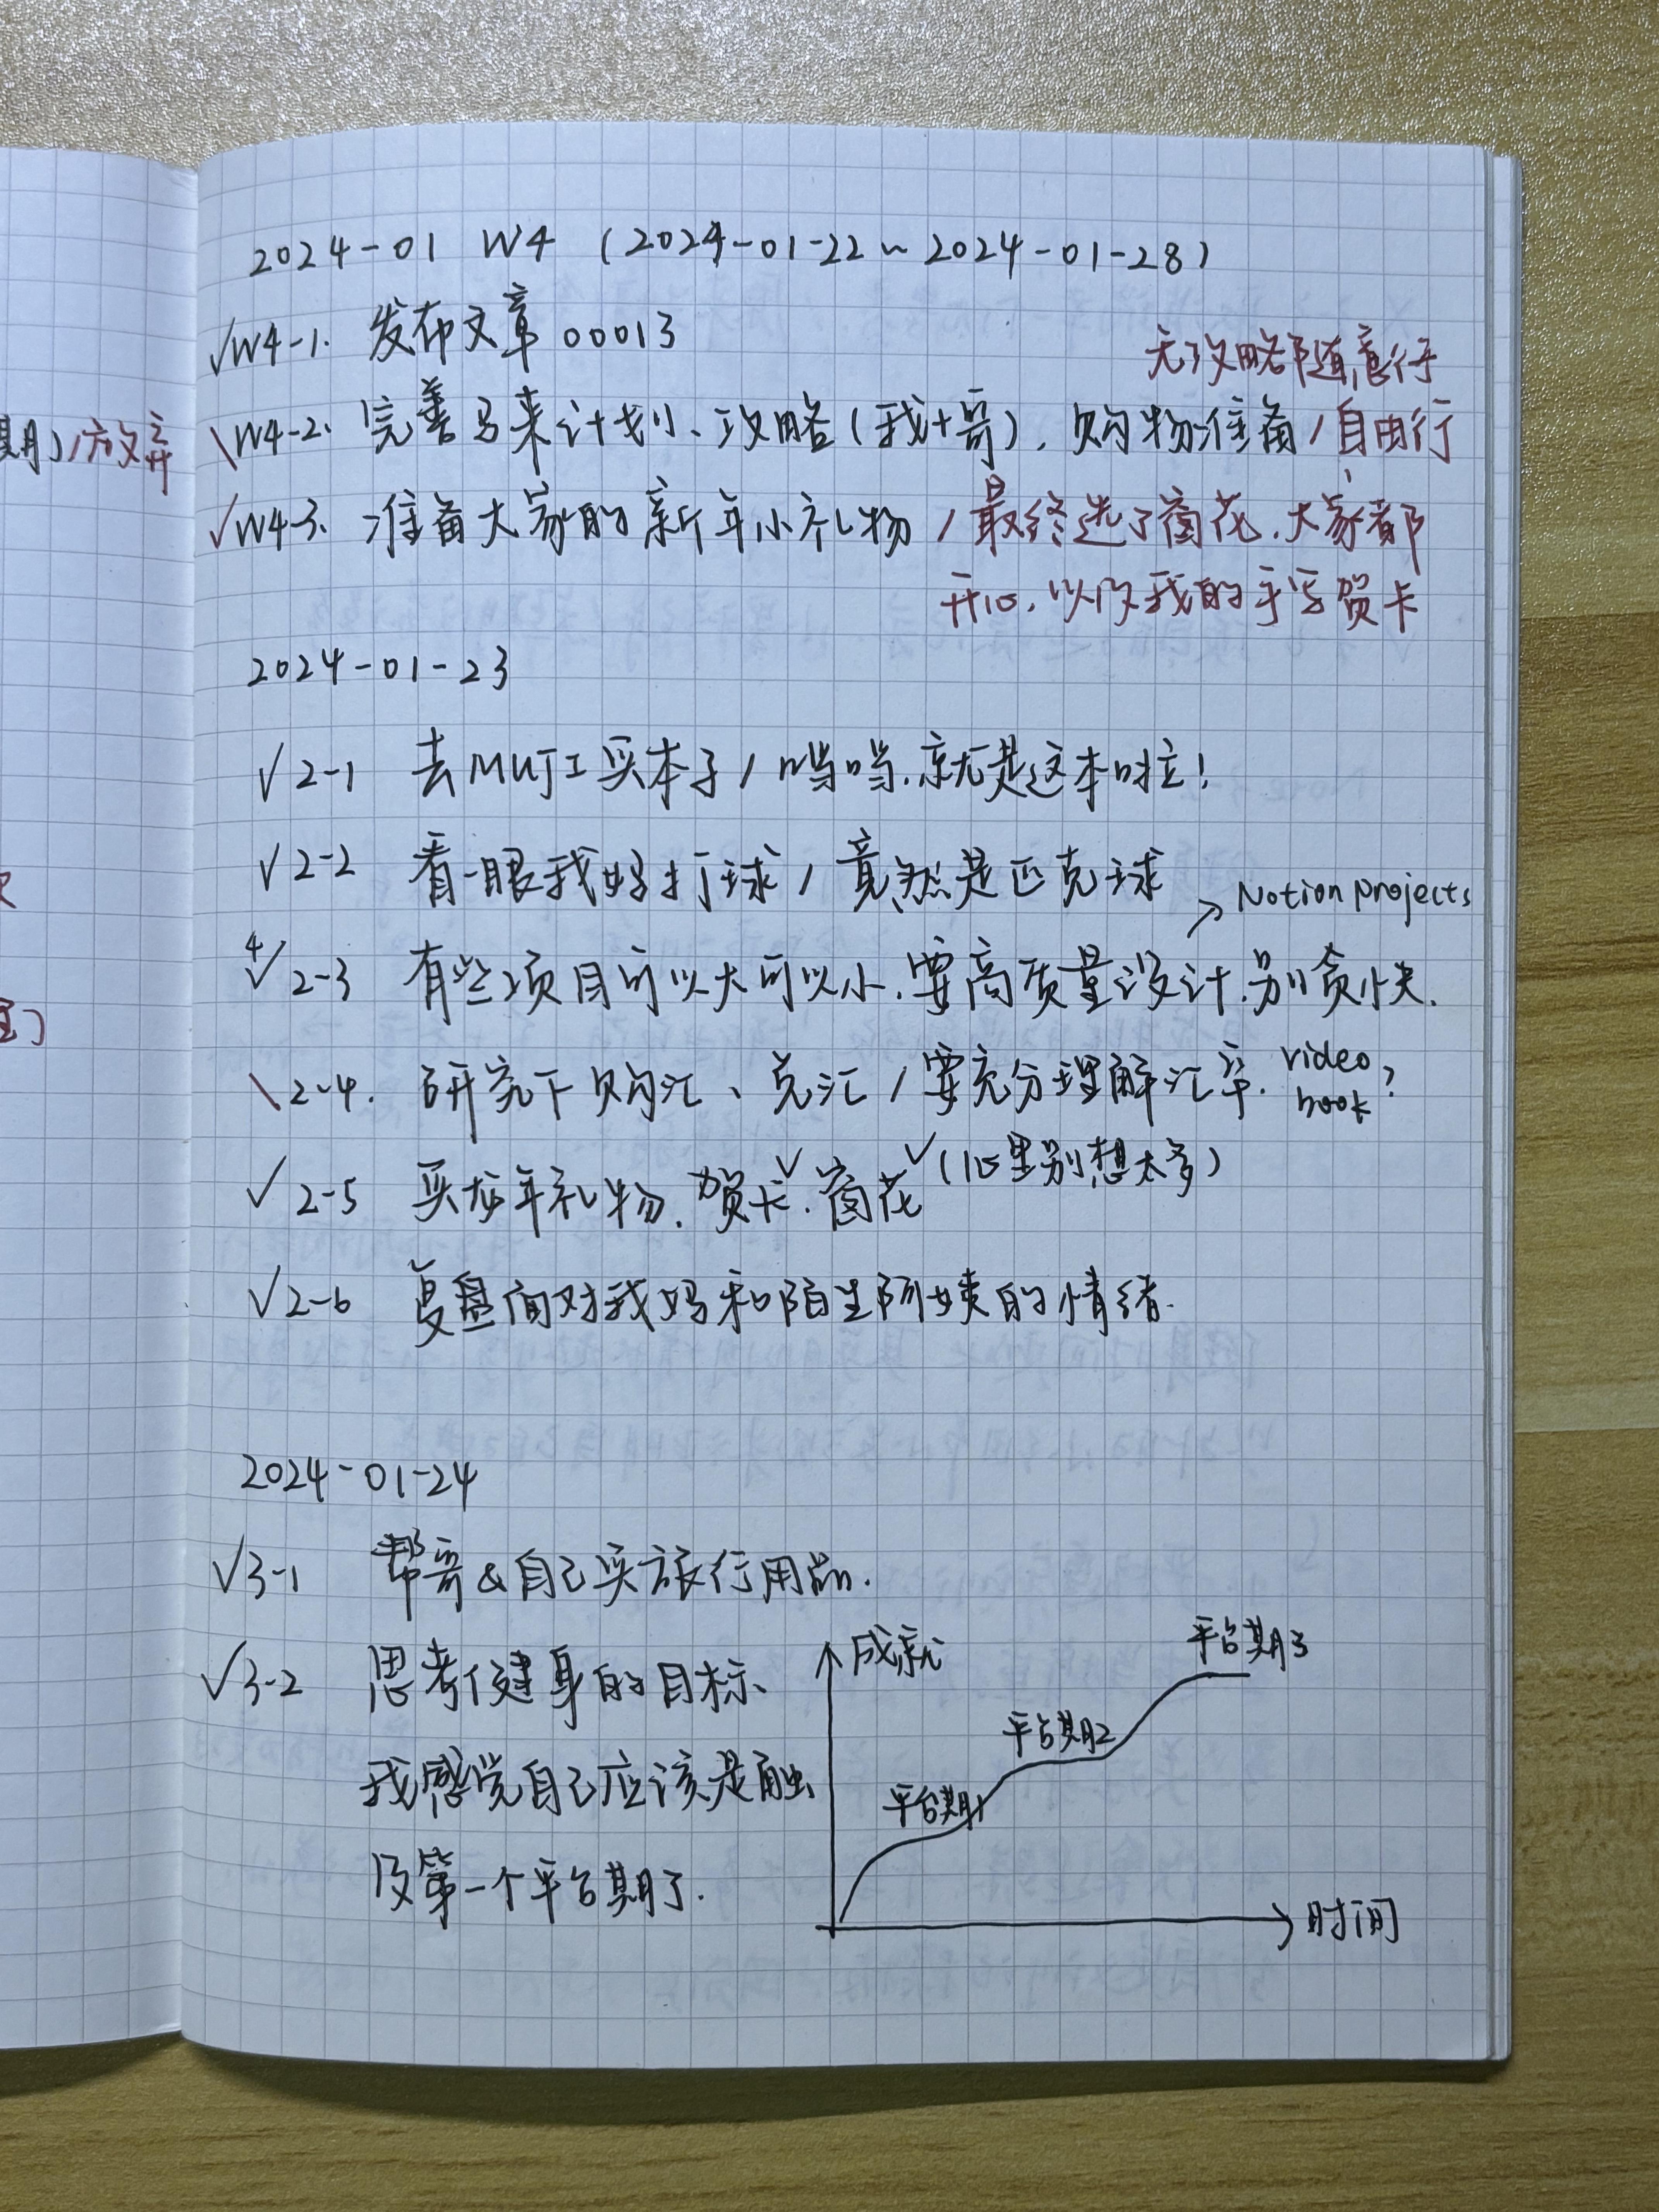 2024-01 W4 (2024-01-22~2024-01-28)
√W4-1. 发布文章 00013
无攻略都随意行
\W4-2. 完善马来计划、攻略(我+哥), 购物准备/自由行
√W4-3. 准备大家的新年小礼物/最终选了窗花.大家都
开心, 以及我的手写贺卡
期)/放弃
2024-01-23
√2-1 去MUJI买本子/噹噹.就是这本啦!
√2-2 看一眼我妈打球/竟然是匹克球
→ Notion projects
4√2-3 有些项目可以大可以小.要高质量设计.别贪快.
\2-4. 研究下购汇、兑汇/要充分理解汇率. video book?
√2-5 买龙年礼物.贺卡√.窗花√(心里别想太多)
√2-6 复盘面对我妈和陌生阿姨的情绪.
2024-01-24
√3-1 帮哥&自己买旅行用品.
√3-2 思考健身的目标、
我感觉自己应该是触
及第一个平台期了.
成就
平台期3
平台期2
平台期1
时间